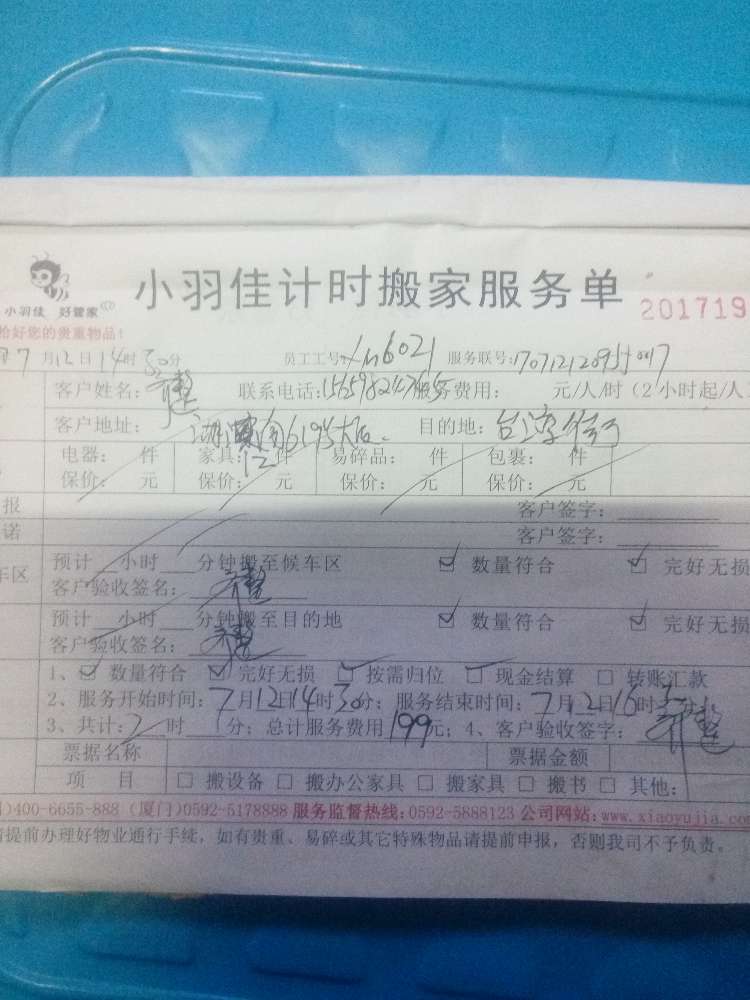 小羽佳计时搬家服务单 201719
小羽佳 好管家
恰好您的贵重物品!
7月12日14时30分 员工工号:xm6021 服务联号:
客户姓名: 联系电话: 服务费用: 元/人/时(2小时起/人
客户地址: 目的地:
电器: 件 家具: 件 易碎品: 件 包裹: 件
保价: 元 保价: 元 保价: 元 保价: 元
报 客户签字:
诺 客户签字:
车区 预计 小时 分钟搬至候车区 ☑ 数量符合 ☑ 完好无损
客户验收签名:
预计 小时 分钟搬至目的地 ☑ 数量符合 ☑ 完好无损
客户验收签名:
1、☑ 数量符合 ☑ 完好无损 ☑ 按需归位 ☑ 现金结算 □ 转账汇款
2、服务开始时间:7月12日14时30分; 服务结束时间:7月12日16时 分
3、共计:2时 分; 总计服务费用199元; 4、客户验收签字:
票据名称 票据金额
项 目 □ 搬设备 □ 搬办公家具 □ 搬家具 □ 搬书 □ 其他:
)400-6655-888 (厦门)0592-5178888 服务监督热线:0592-5888123 公司网站:www.xiaoyujia.com
请提前办理好物业通行手续,如有贵重、易碎或其它特殊物品请提前申报,否则我司不予负责。